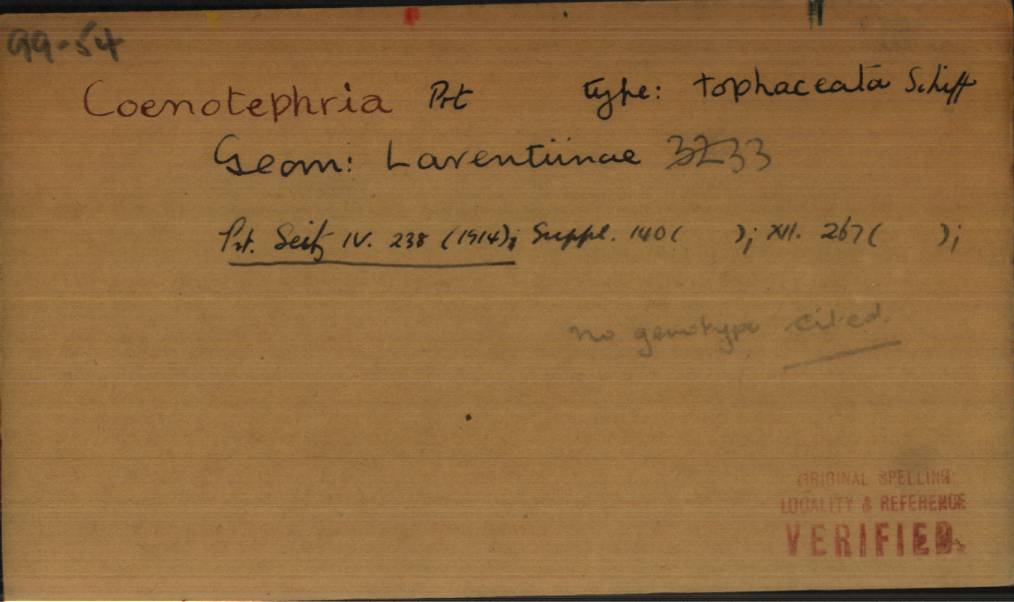 99.54
Coenotephria Prt type: tophaceata Schiff
Geom: Larentiinae 3233
Prt. Seitz IV. 238 (1914); Suppl. 140 ( ); XII. 267 ( );
no genotype cited
ORIGINAL SPELLING
LOCALITY & REFERENCE
VERIFIED